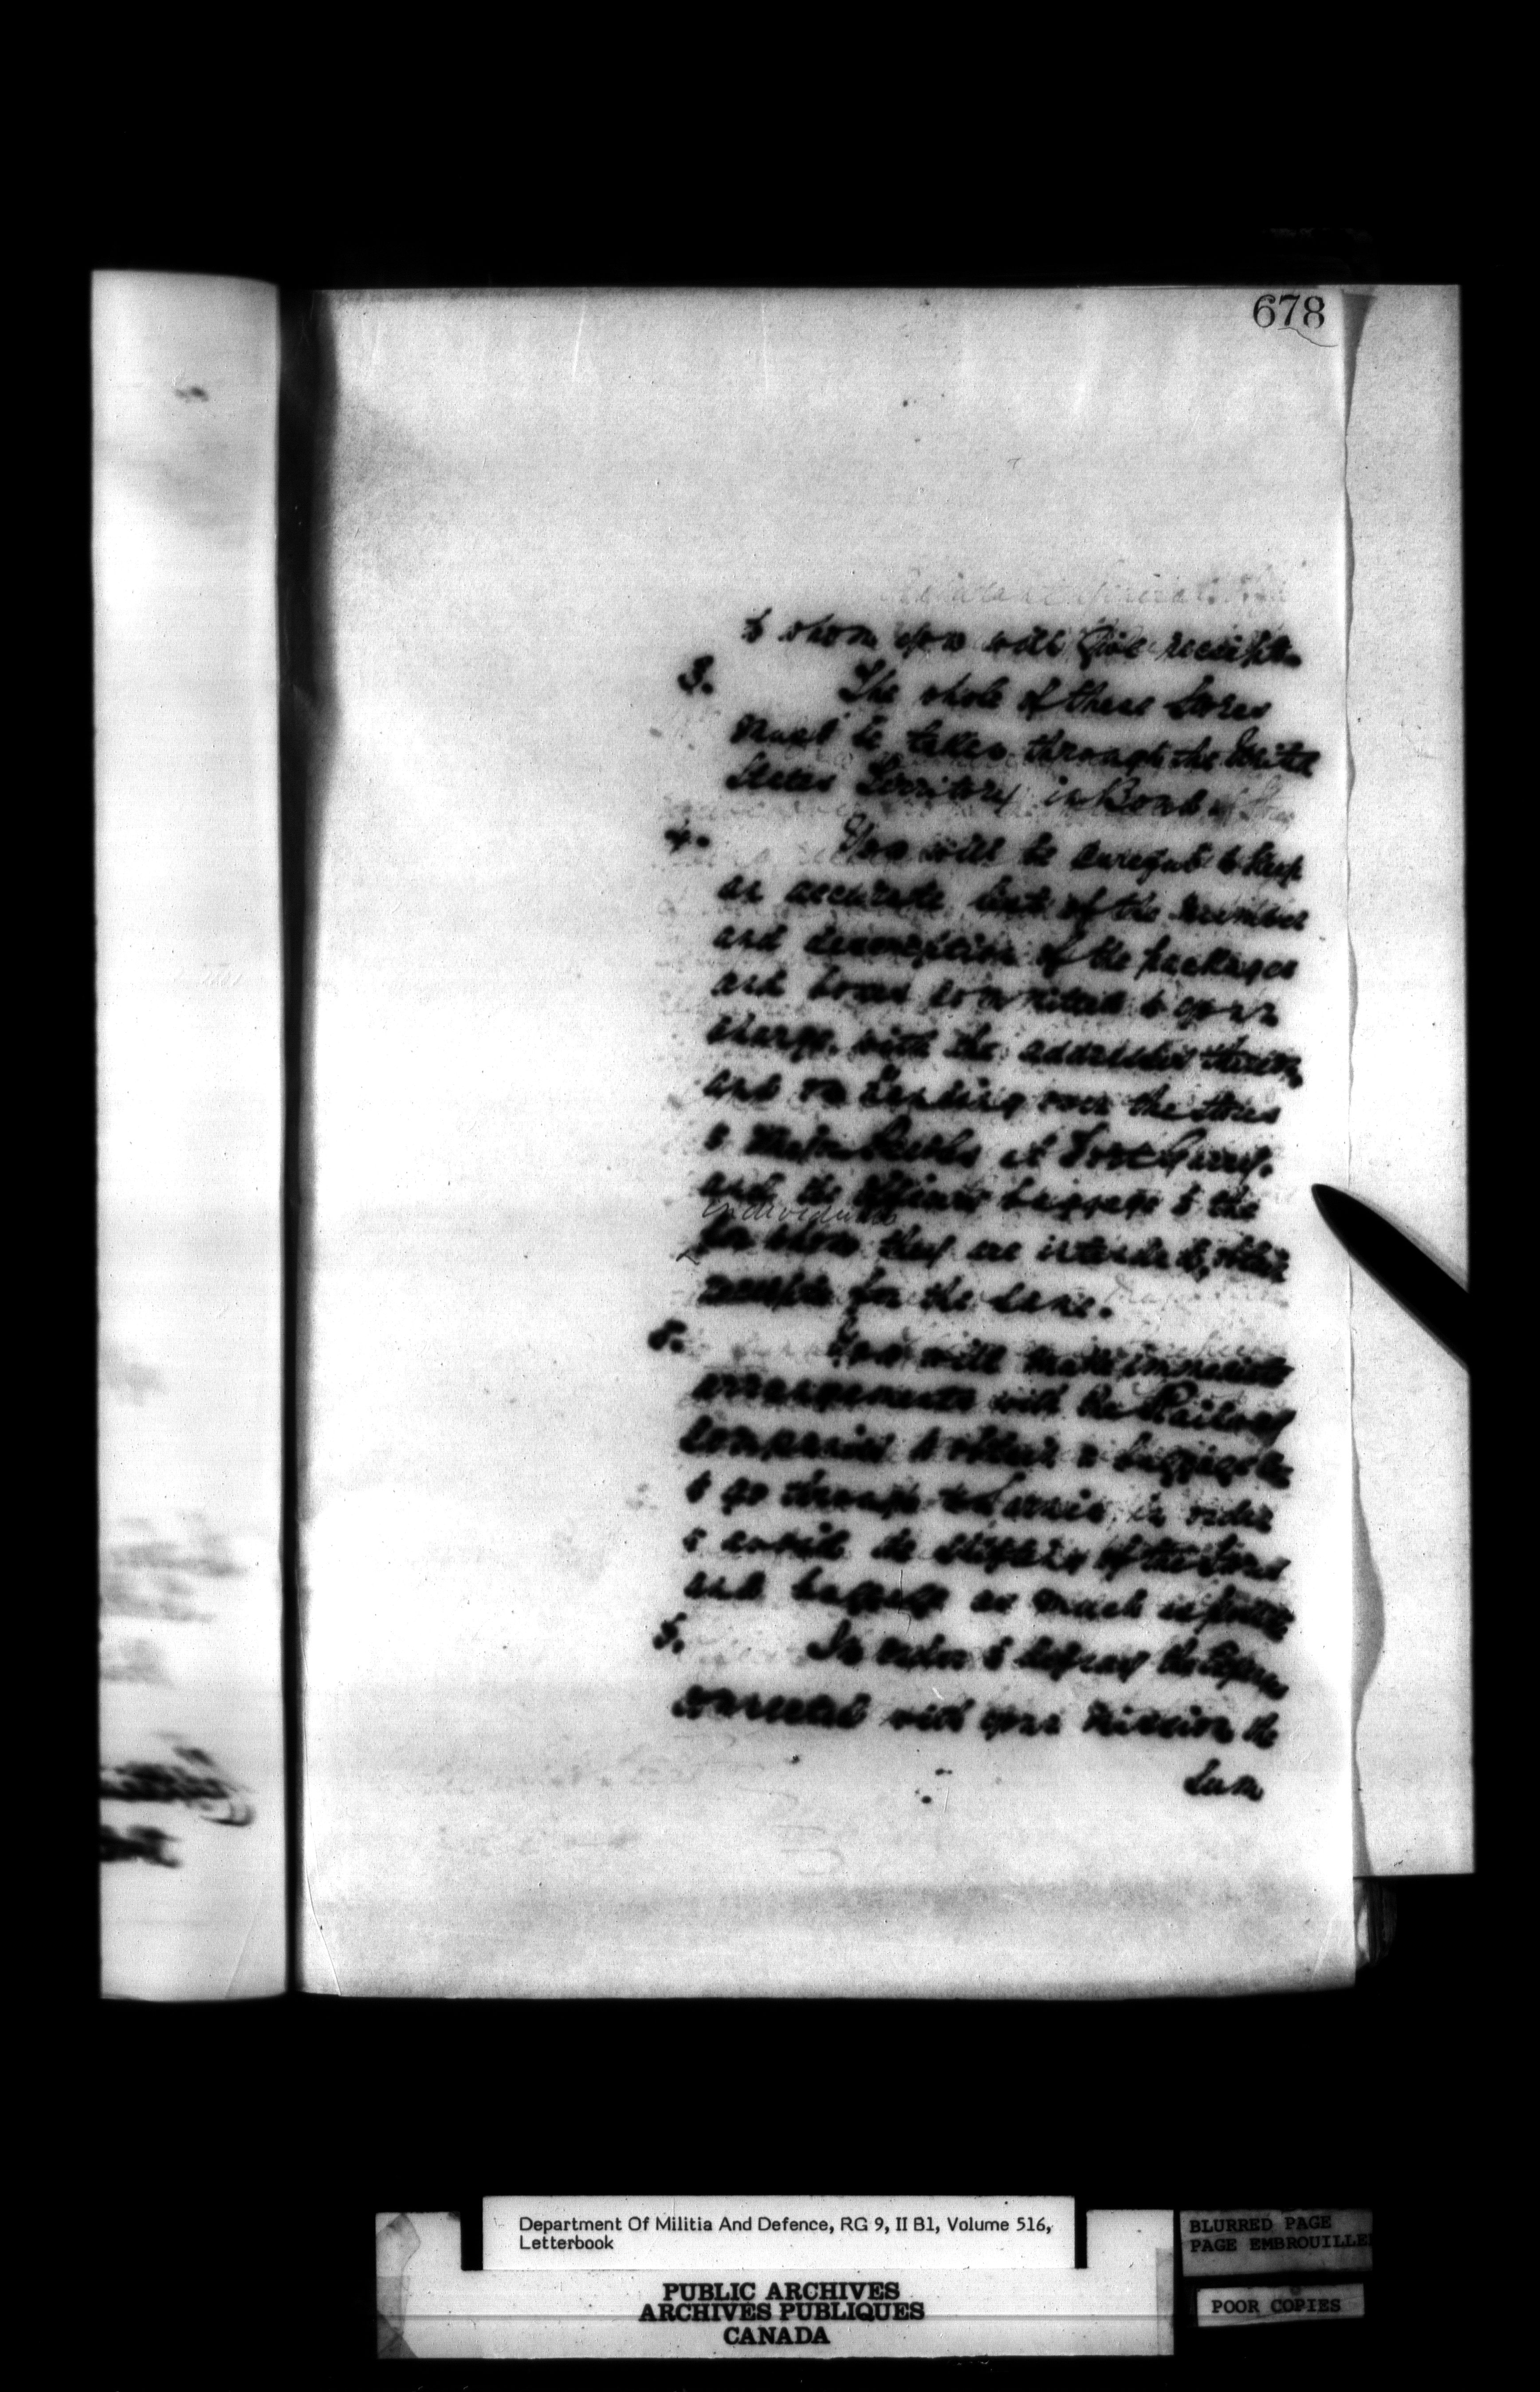 678
to whom you will give receipts.
3. The whole of these Stores
must be taken through the United
States Territory in Bond.
4. You will be careful to keep
an accurate list of the number
and description of the packages
and boxes committed to your
charge, with the addresses thereon,
and on handing over the stores
to Major at Fort Garry,
and the Officers baggage to the
individuals
for whom they are intended, obtain
receipts for the same.
5. You will make immediate
arrangements with the Railway
Companies to obtain a baggage Car
to go through to Sarnia, in order
to avoid the shifting of the Stores
and baggage as much as possible
5. In order to defray the expenses
connected with your mission the
Sum
Department Of Militia And Defence, RG 9, II B1, Volume 516,
Letterbook
BLURRED PAGE
PAGE EMBROUILLE
PUBLIC ARCHIVES
ARCHIVES PUBLIQUES
CANADA
POOR COPIES